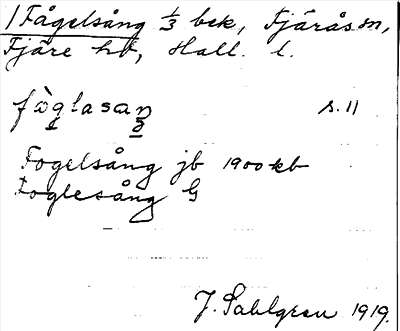 1 Fågelsång 1/3 bek, Fjärås sn,
Fjäre hd, Hall. l.
fòglasaŋ s. 11
Fogelsång jb 1900 kb
Foglesång G
J. Sahlgren 1919.